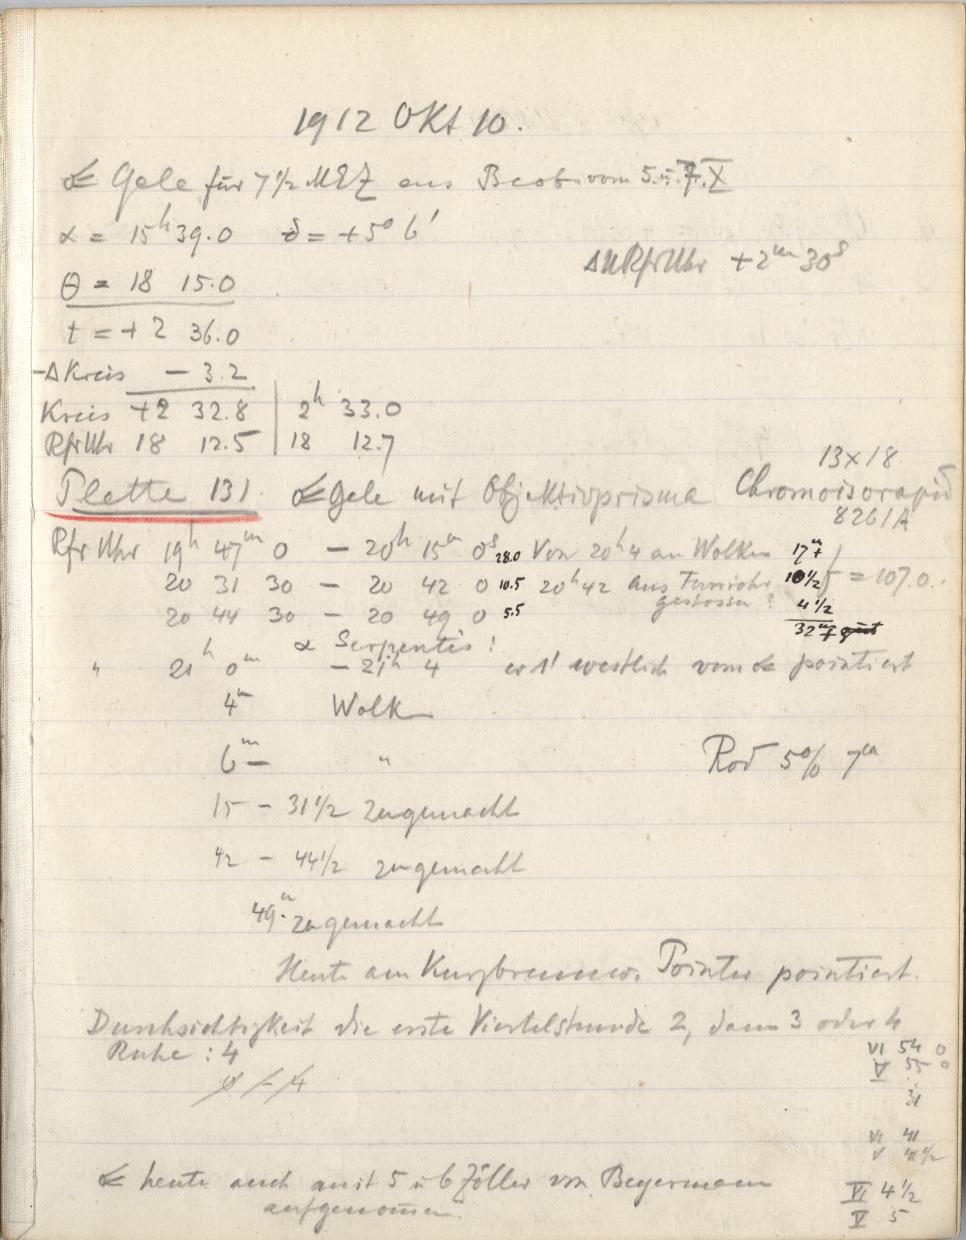 1912 Okt 10.
☄ Gale für 7 1/2 MEZ aus Beob. vom 5. u. 7. X
α = 15h 39.0 δ = +5° 6'
ΔU RfrUhr +2m 30s
θ = 18 15.0
t = +2 36.0
-Δ Kreis - 3.2
Kreis +2 32.8 | 2h 33.0
RfrUhr 18 12.5 | 18 12.7
13x18
Platte 131 ☄ Gale mit Objektivprisma Chromoisorapid
8261A
RfrUhr 19h 47m 0 – 20h 15m 0s 28.0 Von 20h 4 an Wolken 17m
20 31 30 – 20 42 0 10.5 20h 42 ans Fernrohr 10 1/2 = 107.0
gestossen?
20 44 30 – 20 49 0 5.5 4 1/2
32m
α Serpentis!
" 21h 0m – 21h 4 ca 1' westlich vom ☄ pointiert
4m Wolken
6m – "
Rod 5% 7m
15 – 31 1/2 zugemacht
42 – 44 1/2 zugemacht
49m zugemacht
Heute am Kurzbrennw. Pointer pointiert.
Durchsichtigkeit die erste Viertelstunde 2, dann 3 oder 4
Ruhe: 4
VI 54 0
V 55 0
31
VI 41
V 41 1/2
☄ heute auch mit 5 u 6 Zöller von Beyermann
aufgenommen.
VI 4 1/2
V 5